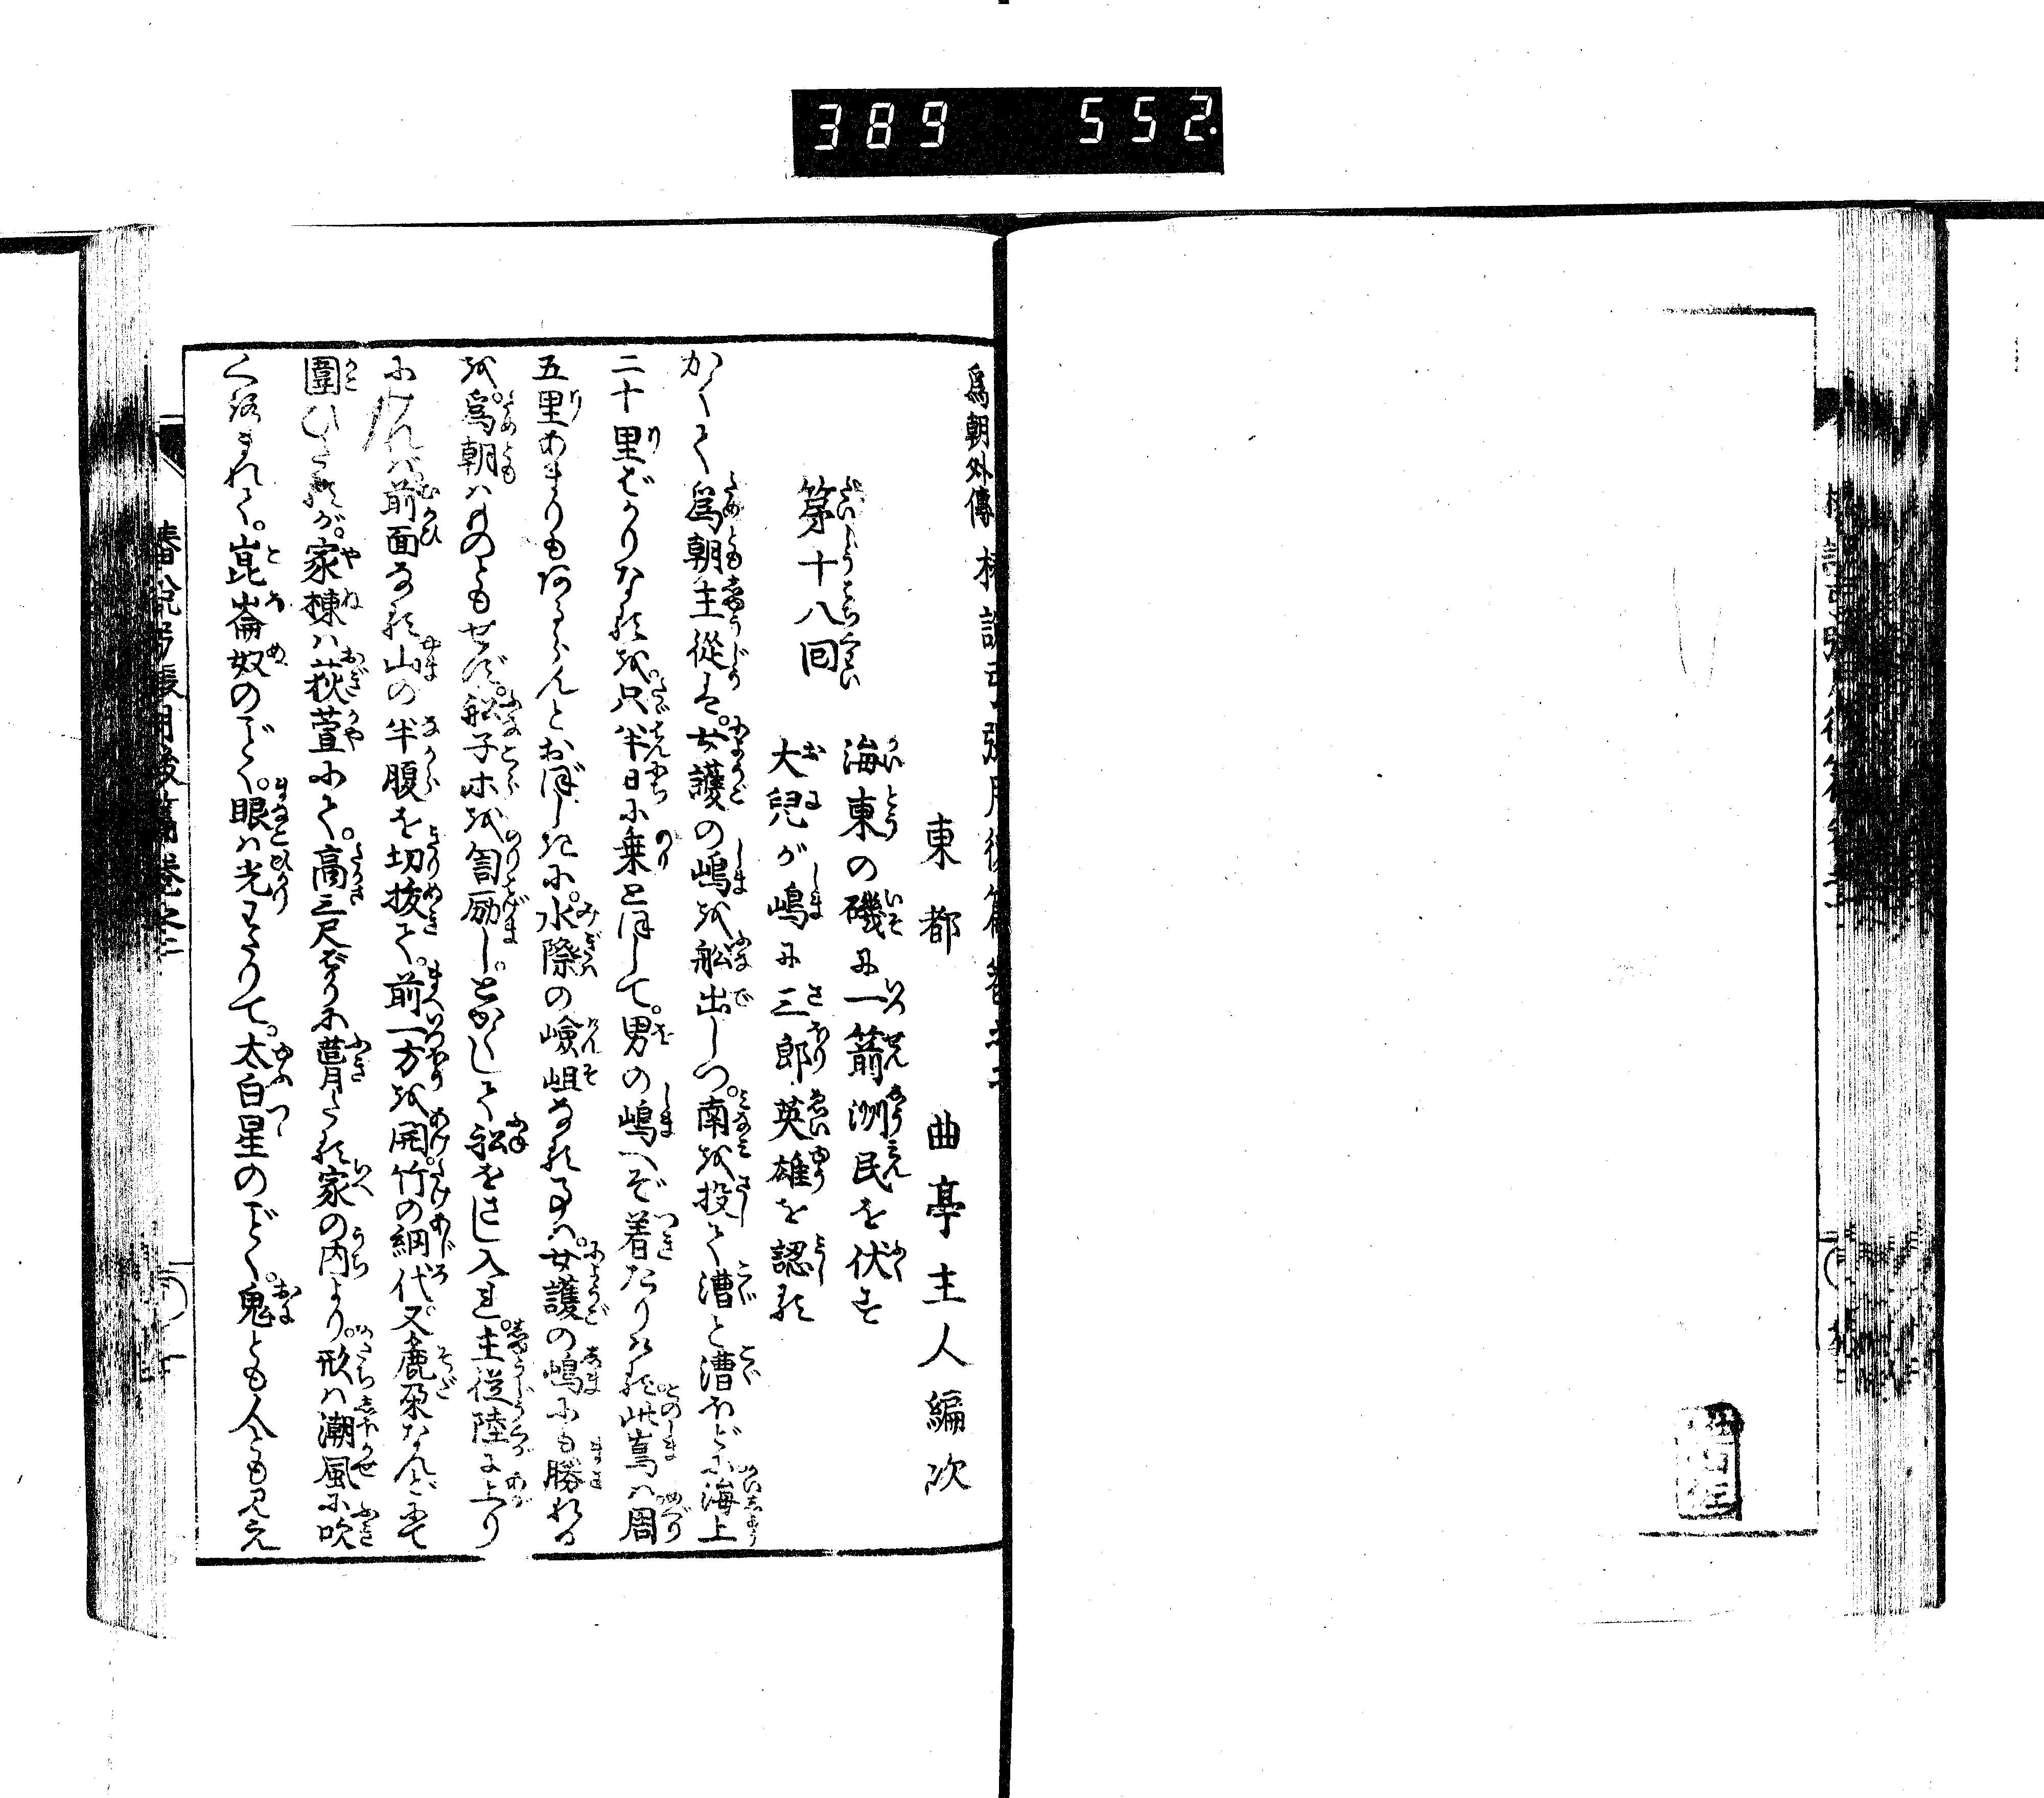 389 552
為朝外傳 椿説弓張月後篇巻之二
東都 曲亭主人編次
第十八囘
海東の磯に一箭洲民を伏す
大兒が嶋に三郎英雄を認る
かくて為朝主從は。女護の嶋を舩出しつ。南を投て漕と漕ほどに海上
二十里ばかりなるを。只半日に乗とほして。男の嶋へぞ着たりける。此嶌は周
五里あまりもあるらんとおぼしきに。水際の嶮岨なる事は。女護の嶋にも勝れる
を。為朝はものともせず。舩子ホを罰励し。とかくして舩をさし入れ。主從陸に上り
見れば前面なる山の半腹を切抜て。前一方を開。竹の網代又麁朶なんどにて
圍ひたるが。家棟は荻萱にて。高三尺ばかりに葺たる家の内より。形は潮風に吹
くろまれて。崑崙奴のごとく。眼は光わたりて。太白星のごとく。鬼とも人とも見え
椿説弓張月後篇巻之二